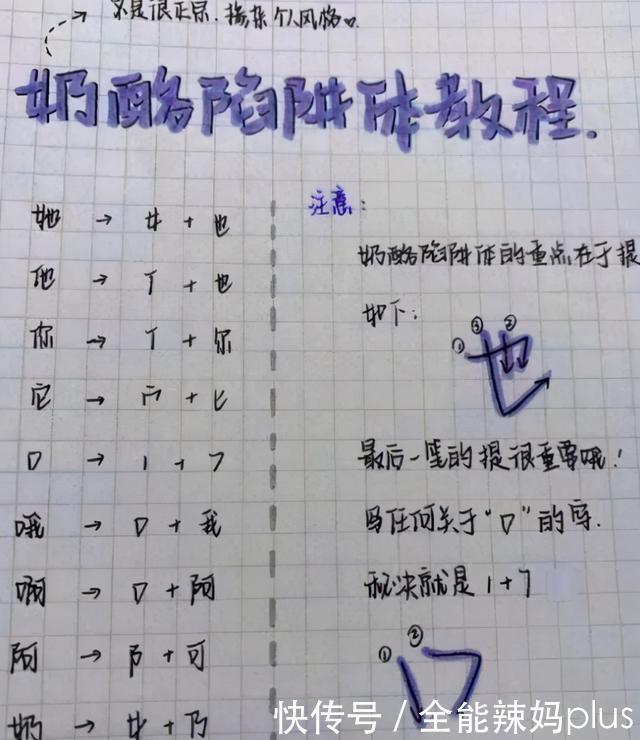 不是很正宗.掺杂个人风格
奶酪陷阱体教程.
她 → 女 + 也
他 → 亻 + 也
你 → 亻 + 尔
它 → 宀 + 匕
口 → 1 + 7
哦 → 口 + 我
啊 → 口 + 阿
阿 → 阝 + 可
奶 → 女 + 乃
注意:
奶酪陷阱体的重点在于提
如下:
① ③ ②
也
最后一笔的提很重要哦!
写任何关于“口”的字.
秘决就是 1 + 7
① ②
口
快传号 / 全能辣妈plus